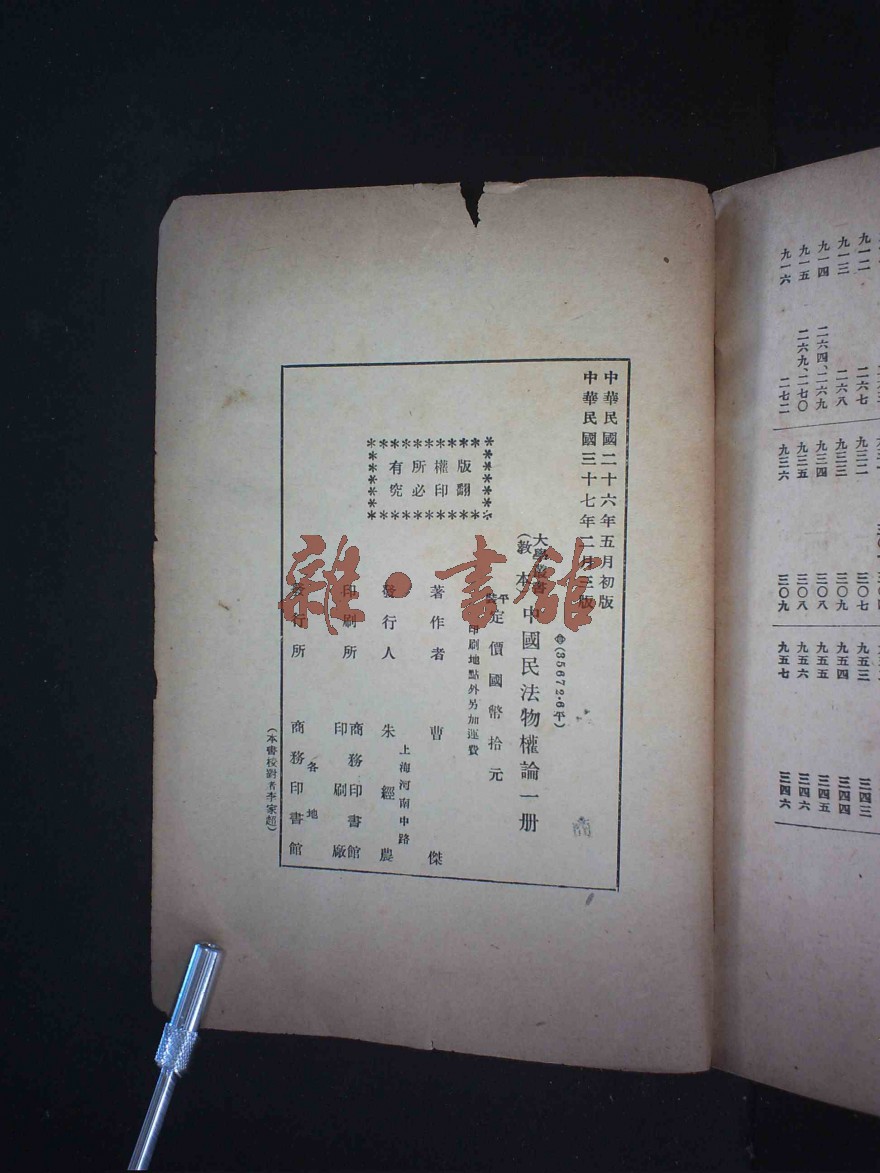 中華民國二十六年五月初版
中華民國三十七年二月三版
◆(35672·6平)
大學叢書
(教本)
中國民法物權論一册
平裝定價國幣拾元
印刷地點外另加運費
著作者 曹傑
發行人 朱經農
上海河南中路
印刷所 商務印書館
印刷廠
發行所 商務印書館
各地
(本書校對者李家超)
版權所有
翻印必究
雜·書館
九一二
九一三
九一四
九一五
九一六
二六七
二六八
二六四、二六九
二六九、二七〇
二七二
九三二
九三三
九三四
九三五
九三六
三〇七
三〇九
三〇八
三〇八
三〇九
九五三
九五四
九五五
九五六
九五七
三四三
三四四
三四五
三四六
三四六